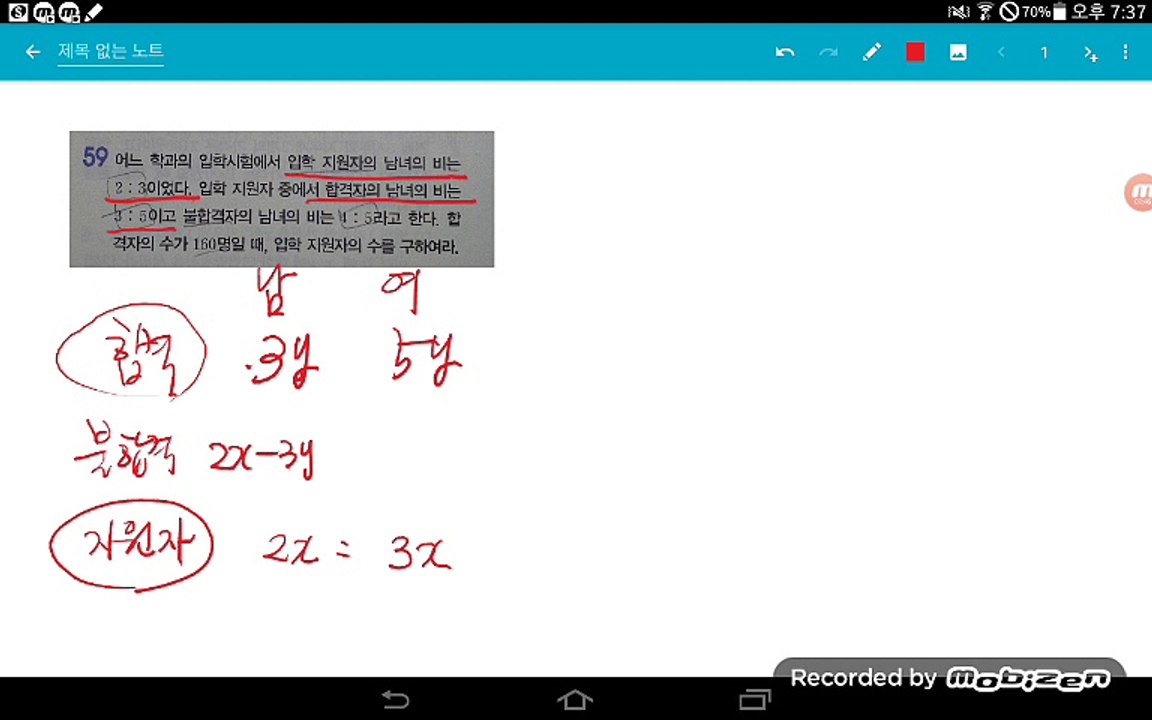 70% 오후 7:37
제목 없는 노트
1
59 어느 학과의 입학시험에서 입학 지원자의 남녀의 비는
2 : 3이었다. 입학 지원자 중에서 합격자의 남녀의 비는
3 : 5이고 불합격자의 남녀의 비는 4 : 5라고 한다. 합
격자의 수가 160명일 때, 입학 지원자의 수를 구하여라.
남 여
합격 3y 5y
불합격 2x-3y
지원자 2x : 3x
Recorded by mobizen